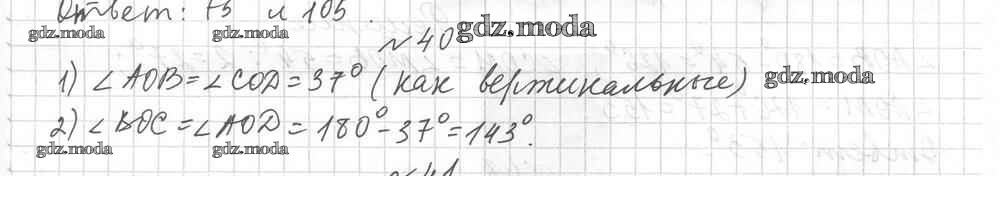 Ответ: 75 и 105.
gdz.moda gdz.moda
№ 40 gdz.moda
1) ∠AOB = ∠COD = 37° (как вертикальные) gdz.moda
2) ∠BOC = ∠AOD = 180° - 37° = 143°.
gdz.moda gdz.moda
№ 41